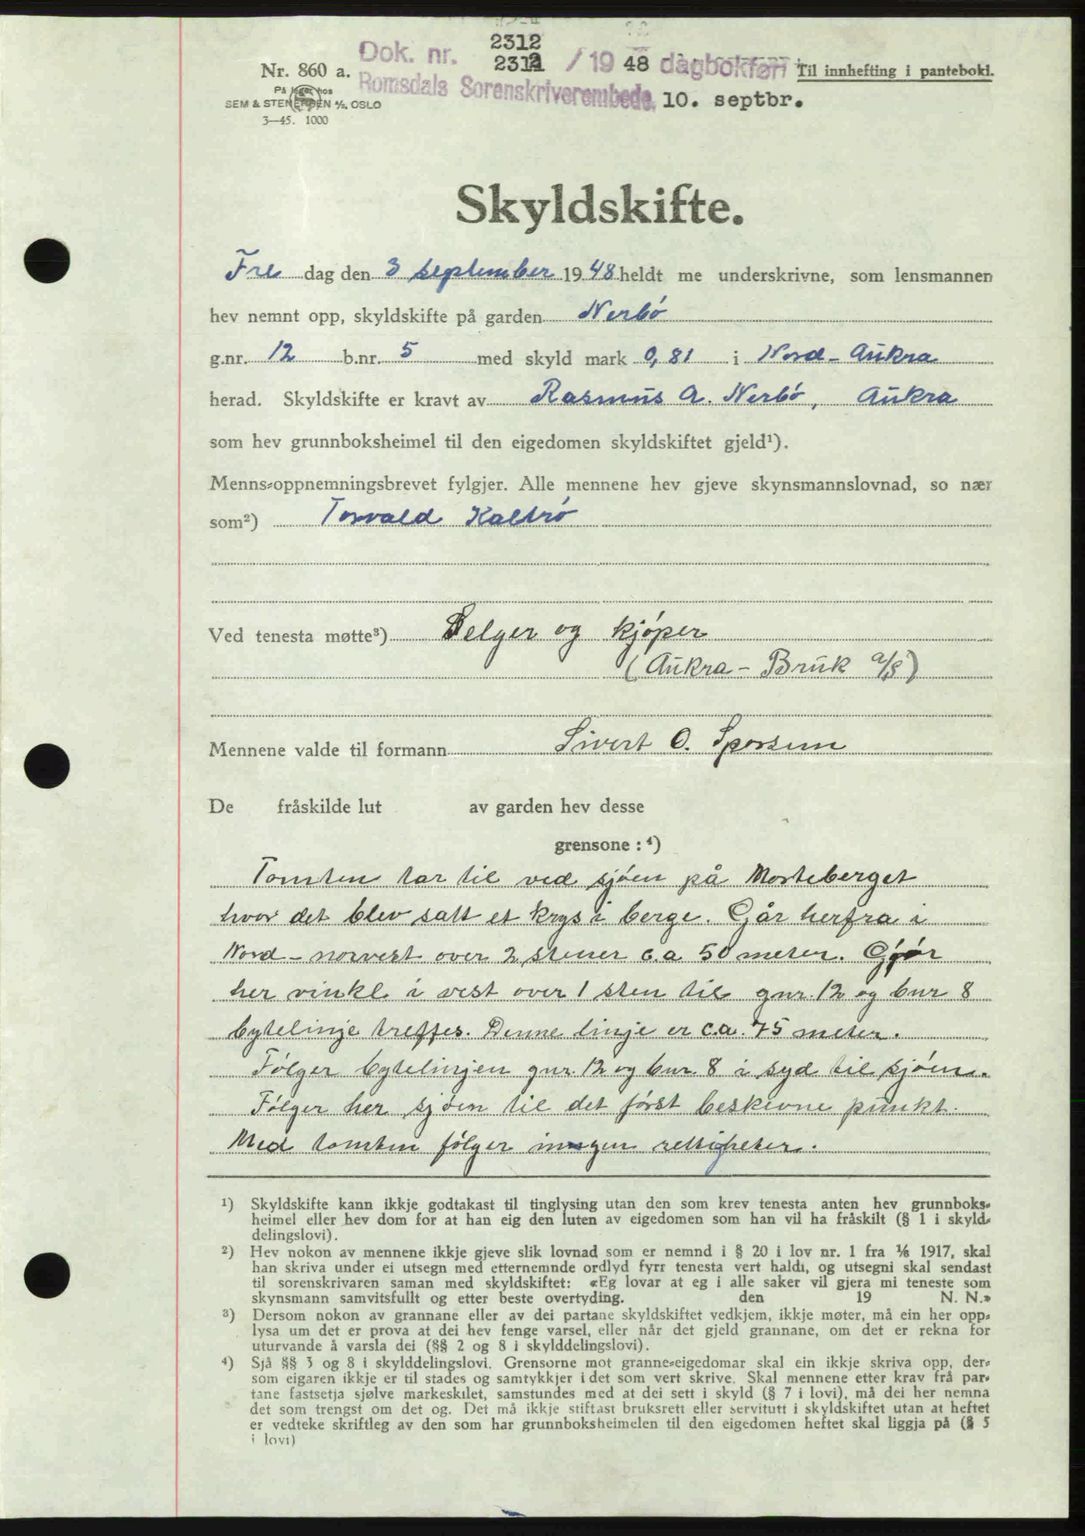 2312
Dok. nr. 2312 / 1948 dagbokført Til innhefting i pantebok.
Nr. 860 a.
På lager hos
SEM & STENERSEN A/S, OSLO
3—45. 1000
Romsdals Sorenskriverembede, 10. septbr.
Skyldskifte.
Fre dag den 3 september 1948 heldt me underskrivne, som lensmannen
hev nemnt opp, skyldskifte på garden Nerbø
g.nr. 12 b.nr. 5 med skyld mark 0,81 i Nord-Aukra
herad. Skyldskifte er kravt av Rasmus A. Nerbø, Aukra
som hev grunnboksheimel til den eigedomen skyldskiftet gjeld¹).
Menns-oppnemningsbrevet fylgjer. Alle mennene hev gjeve skynsmannslovnad, so nær
som²) Torvald Kalbø
Ved tenesta møtte³) Selger og kjøper
(Aukra-Bruk A/S)
Mennene valde til formann Sivert O. Sporsem
De fråskilde lut av garden hev desse
grensone:⁴)
Tomten tar til ved sjøen på Morteberget
hvor det blev satt et krys i berge. Går herfra i
Nord-norvest over 2 stener c.a 50 meter. Gjør
her vinkl i vest over 1 sten til gnr. 12 og bnr 8
bytelinje treffes. Denne linje er c.a. 75 meter.
Følger bytelinjen gnr. 12 og bnr. 8 i syd til sjøen.
Følger her sjøen til det først beskevne punkt.
Med tomten følger ingen rettigheter.
¹) Skyldskifte kann ikkje godtakast til tinglysing utan den som krev tenesta anten hev grunnboks-
heimel eller hev dom for at han eig den luten av eigedomen som han vil ha fråskilt (§ 1 i skyld-
delingslovi).
²) Hev nokon av mennene ikkje gjeve slik lovnad som er nemnd i § 20 i lov nr. 1 fra 1/6 1917, skal
han skriva under ei utsegn med etternemnde ordlyd fyrr tenesta vert haldi, og utsegni skal sendast
til sorenskrivaren saman med skyldskiftet: «Eg lovar at eg i alle saker vil gjera mi teneste som
skynsmann samvitsfullt og etter beste overtyding. den 19 N. N.»
³) Dersom nokon av grannane eller av dei partane skyldskiftet vedkjem, ikkje møter, må ein her opp-
lysa um det er prova at dei hev fenge varsel, eller når det gjeld grannane, om det er rekna for
uturvande å varsla dei (§§ 2 og 8 i skylddelingslovi).
⁴) Sjå §§ 3 og 8 i skylddelingslovi. Grensorne mot granne-eigedomar skal ein ikkje skriva opp, der-
som eigaren ikkje er til stades og samtykkjer i det som vert skrive. Skal mennene etter krav frå par-
tane fastsetja sjølve markeskilet, samstundes med at dei sett i skyld (§ 7 i lovi), må dei her nemna
det som trengst om det og. Det må ikkje stiftast bruksrett eller servitutt i skyldskiftet utan at heftet
er vedteke skriftleg av den som har grunnboksheimelen til den eigedomen heftet skal liggja på (§ 5
i lovi)